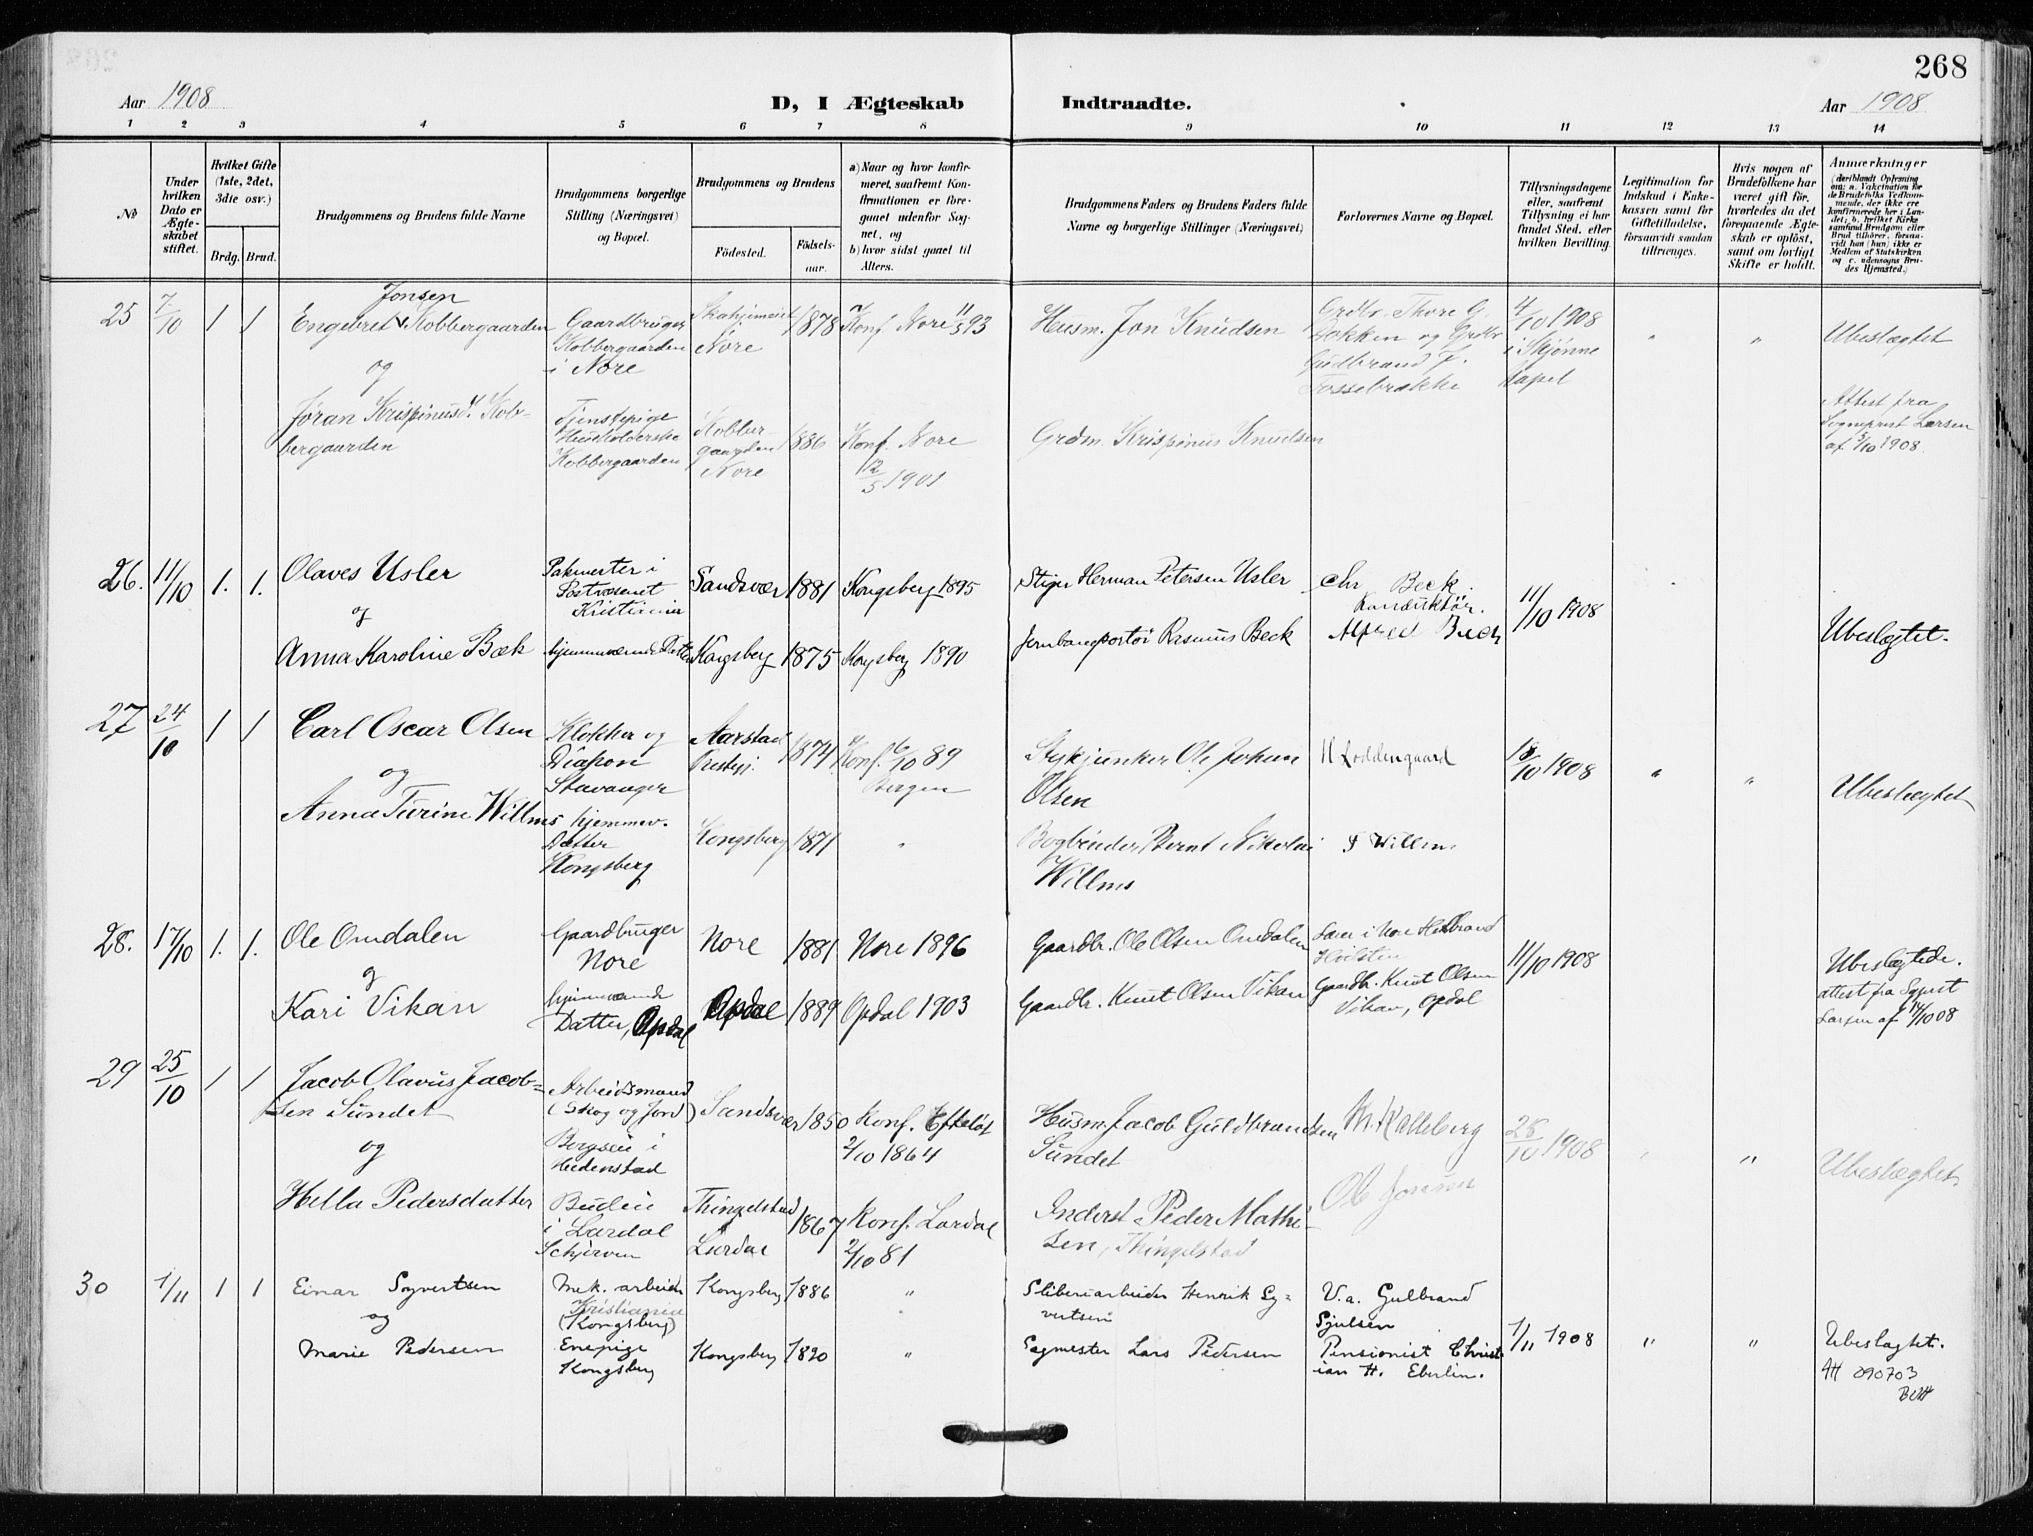 268
Aar 1908
D, I Ægteskab Indtraadte.
Aar 1908
1 2 3 4 5 6 7 8 9 10 11 12 13 14
No
Under hvilken Dato er Ægteskabet stiftet.
Hvilket Gifte (1ste, 2det, 3die osv.)
Brdg. Brud.
Brudgommens og Brudens fulde Navne
Brudgommens borgerlige Stilling (Næringsvei) og Bopæl.
Brudgommens og Brudens
Födested.
Födsels-aar.
a) Naar og hvor konfirmeret, saafremt Konfirmationen er foregaaet udenfor Sognet, og
b) hvor sidst gaaet til Alters.
Brudgommens Faders og Brudens Faders fulde Navne og borgerlige Stillinger (Næringsvei)
Forlovernes Navne og Bopæl.
Tillysningsdagene eller, saafremt Tillysning ei har fundet Sted, efter hvilken Bevilling.
Legitimation for Indskud i Enkekassen samt for Giftetilladelse, forsaavidt saadan tiltrænges.
Hvis nogen af Brudefolkene har været gift för, hvorledes da det foregaaende Ægteskab er oplöst, samt om lovligt Skifte er holdt.
Anmærkninger (deriblandt Oplysning om: a. Vakcination for de Brudefolks Vedkommende, der ikke ere konfirmerede her i Landet; b. hvilket Kirkesamfund Brudgom eller Brud tilhörer, forsaavidt han (hun) ikke er Medlem af Statskirken og c. udensogns Brudes Hjemsted.)
25 7/10 1 1 Engebret Jonsen Kobbergaarden
Gaardbruger Kobbergaarden i Nore
i Nore
1878
Konf. Nore 11/5 93
Husm. Jon Knudsen
Grdbr. Thore G. Løkken og Grdbr Gudbrand J. Fossebrække
4/10 1908 i Skjønne Kapel
" "
Ubeslægtet
og
Jøran Krispinusd. Kobbergaarden
Tjenstepige Husholderske Kobbergaarden
Kobbergaarden Nore
1886
Konf. Nore 12/5 1901
Grdm. Krispinus Knudsen
Attest fra Sogneprest Larsen af 5/10 1908.
26. 11/10 1. 1. Olaves Usler
Pakmester i Postvæsenet Kristiania
Sandsvær 1881 Kongsberg 1895
Stiger Herman Petersen Usler
Chr Beck Konduktør.
11/10 1908
og
Anna Karoline Bæk
hjemmeværende Datter
Kongsberg 1875 Kongsberg 1890
Rasmus Beck
Alfred Beck
Ubeslegtet.
27 24/10 1 1 Carl Oscar Olsen
Klokker og Diakon Stavanger
Aarstad Prestegj.
1874
Konf. 6/10 89 Bergen
Stykjunker Ole Johan Olsen
H Loddengaard
18/10 1908
" "
Ubeslægtet
og
Anna Turine Willms
hjemmev. Datter Kongsberg
Kongsberg 1871 "
Bogbinder Bernt Nikolai Willms
Willms
28. 17/10 1. 1. Ole Omdalen
Gaardbruger Nore
Nore 1881 Nore 1896
Gaardbr. Ole Olsen Omdalen
11/10 1908
Ubeslegtede.
attest fra Sgprst Larsen af 14/10 08
og
Kari Vikan
hjemmeværende Datter, Opdal
Opdal 1889 Opdal 1903
Gaardbr. Knut Olsen Vikan
Gaardbr. Knut Olsen Vikan, Opdal
29 25/10 1 1 Jacob Olavus Jacobsen Sundet
Arbeidsmand (Skog og Jord) Borgseie i Hedenstad
Sandsvær 1850
Konf. Efteløt 2/10 1864
Husm. Jacob Guldbrandsen Sundet
M. Kalleberg
25/10 1908
" "
Ubeslægtet.
og
Hella Pedersdatter
Budeie i Lardal Schjerven
Thingelstad Lardal
1867
Konf. Lardal 2/10 81
Inderst Peder Mathisen, Thingelstad
Ole Jonsen
30 1/11 1 1 Einar Syvertsen
Mek. arbeider Kristiania (Kongsberg)
Kongsberg 1886 "
Sliberiarbeider Henrik Syvertsen
V.a. Gulbrand Sjulsen
1/11 1908
" "
Ubeslægtet.
og
Marie Pedersen
Enepige Kongsberg
Kongsberg 1890 "
Sagmester Lars Pedersen
Pensionist Christian H. Eberlin.
090703